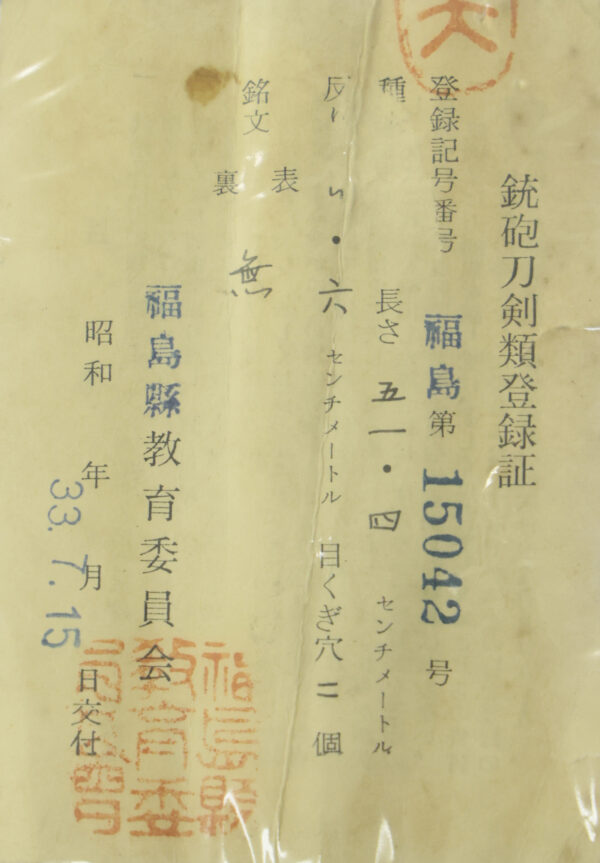 銃砲刀剣類登録証
登録記号番号 福島第15042号
種 長さ 五一・四 センチメートル
反り ・六 センチメートル 目くぎ穴 二 個
銘文 表 無
裏
福島縣教育委員会
昭和 33年 7.月 15日交付
福島縣教育委員会